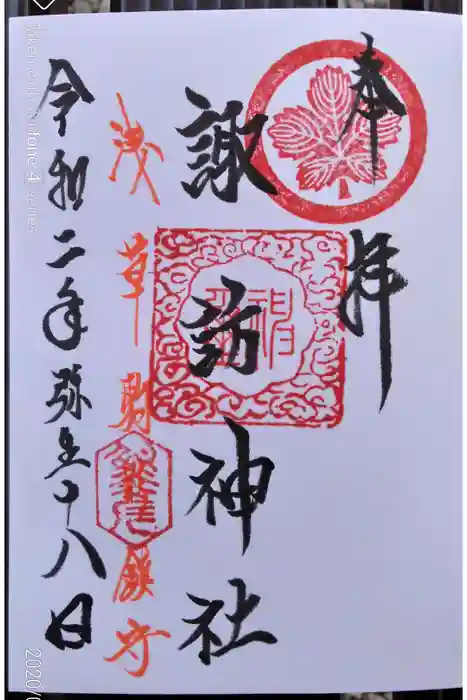 奉拝
諏訪神社
浅草駒形鎮守
令和二年弥生十八日
Taken with Zenfone 4 series